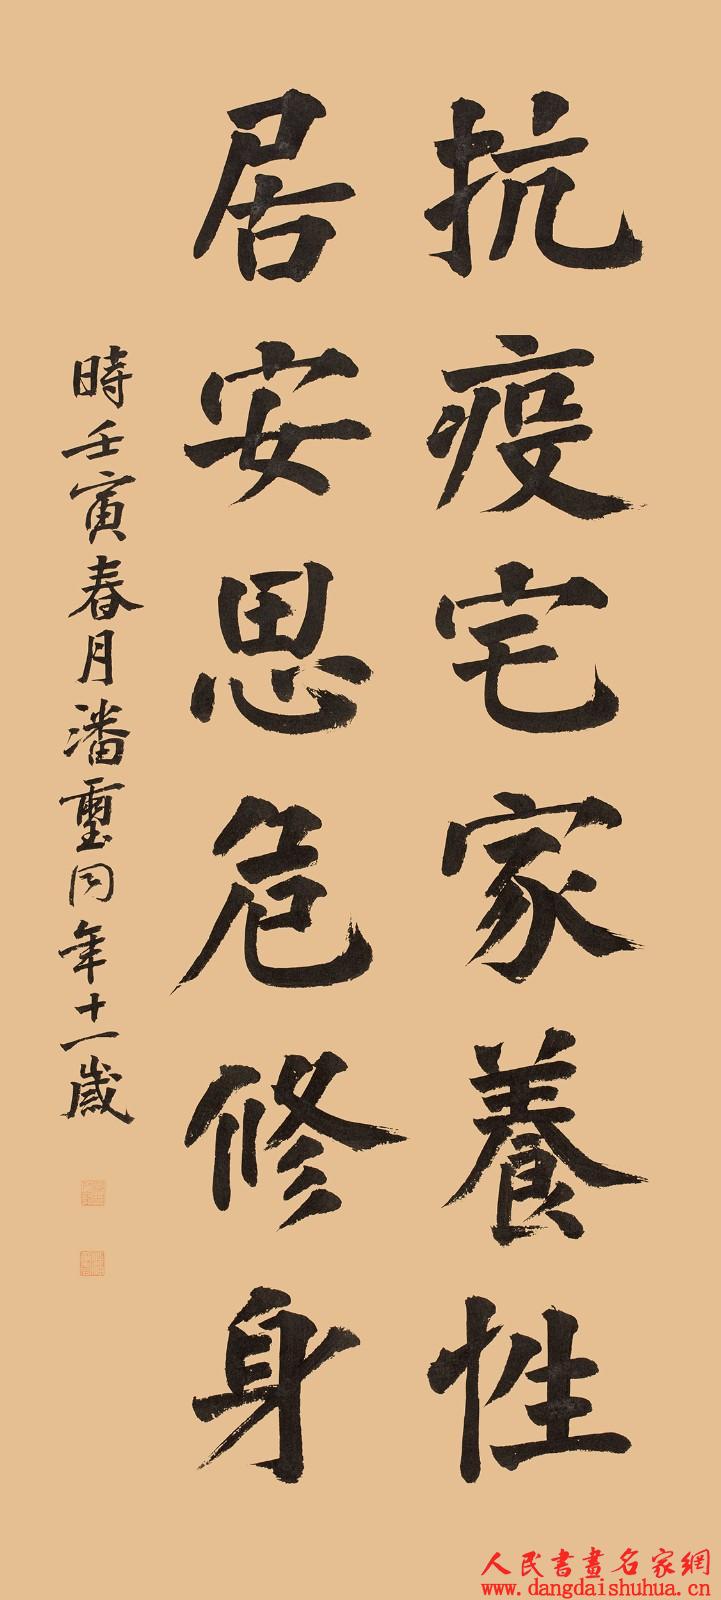 抗疫宅家養性
居安思危修身
時壬寅春月潘璽同年十一歲
人民書畫名家網
www.dangdaishuhua.cn